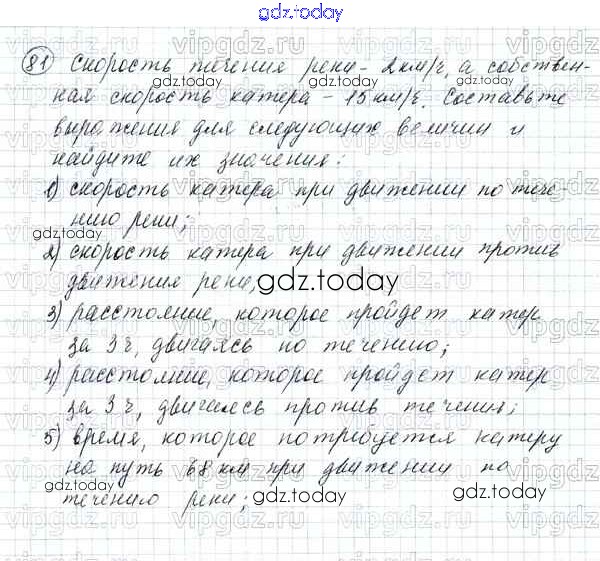 gdz.today
81 Скорость течения реки - 2 км/ч, а собствен-
ная скорость катера - 15 км/ч. Составьте
выражения для следующих величин и
найдите их значения:
1) скорость катера при движении по тече-
нию реки;
2) скорость катера при движении против
движения реки,
3) расстояние, которое пройдет катер
за 3 ч, двигаясь по течению;
4) расстояние, которое пройдет катер
за 3 ч, двигаясь против течения;
5) время, которое потребуется катеру
на путь 68 км при движении по
течению реки;